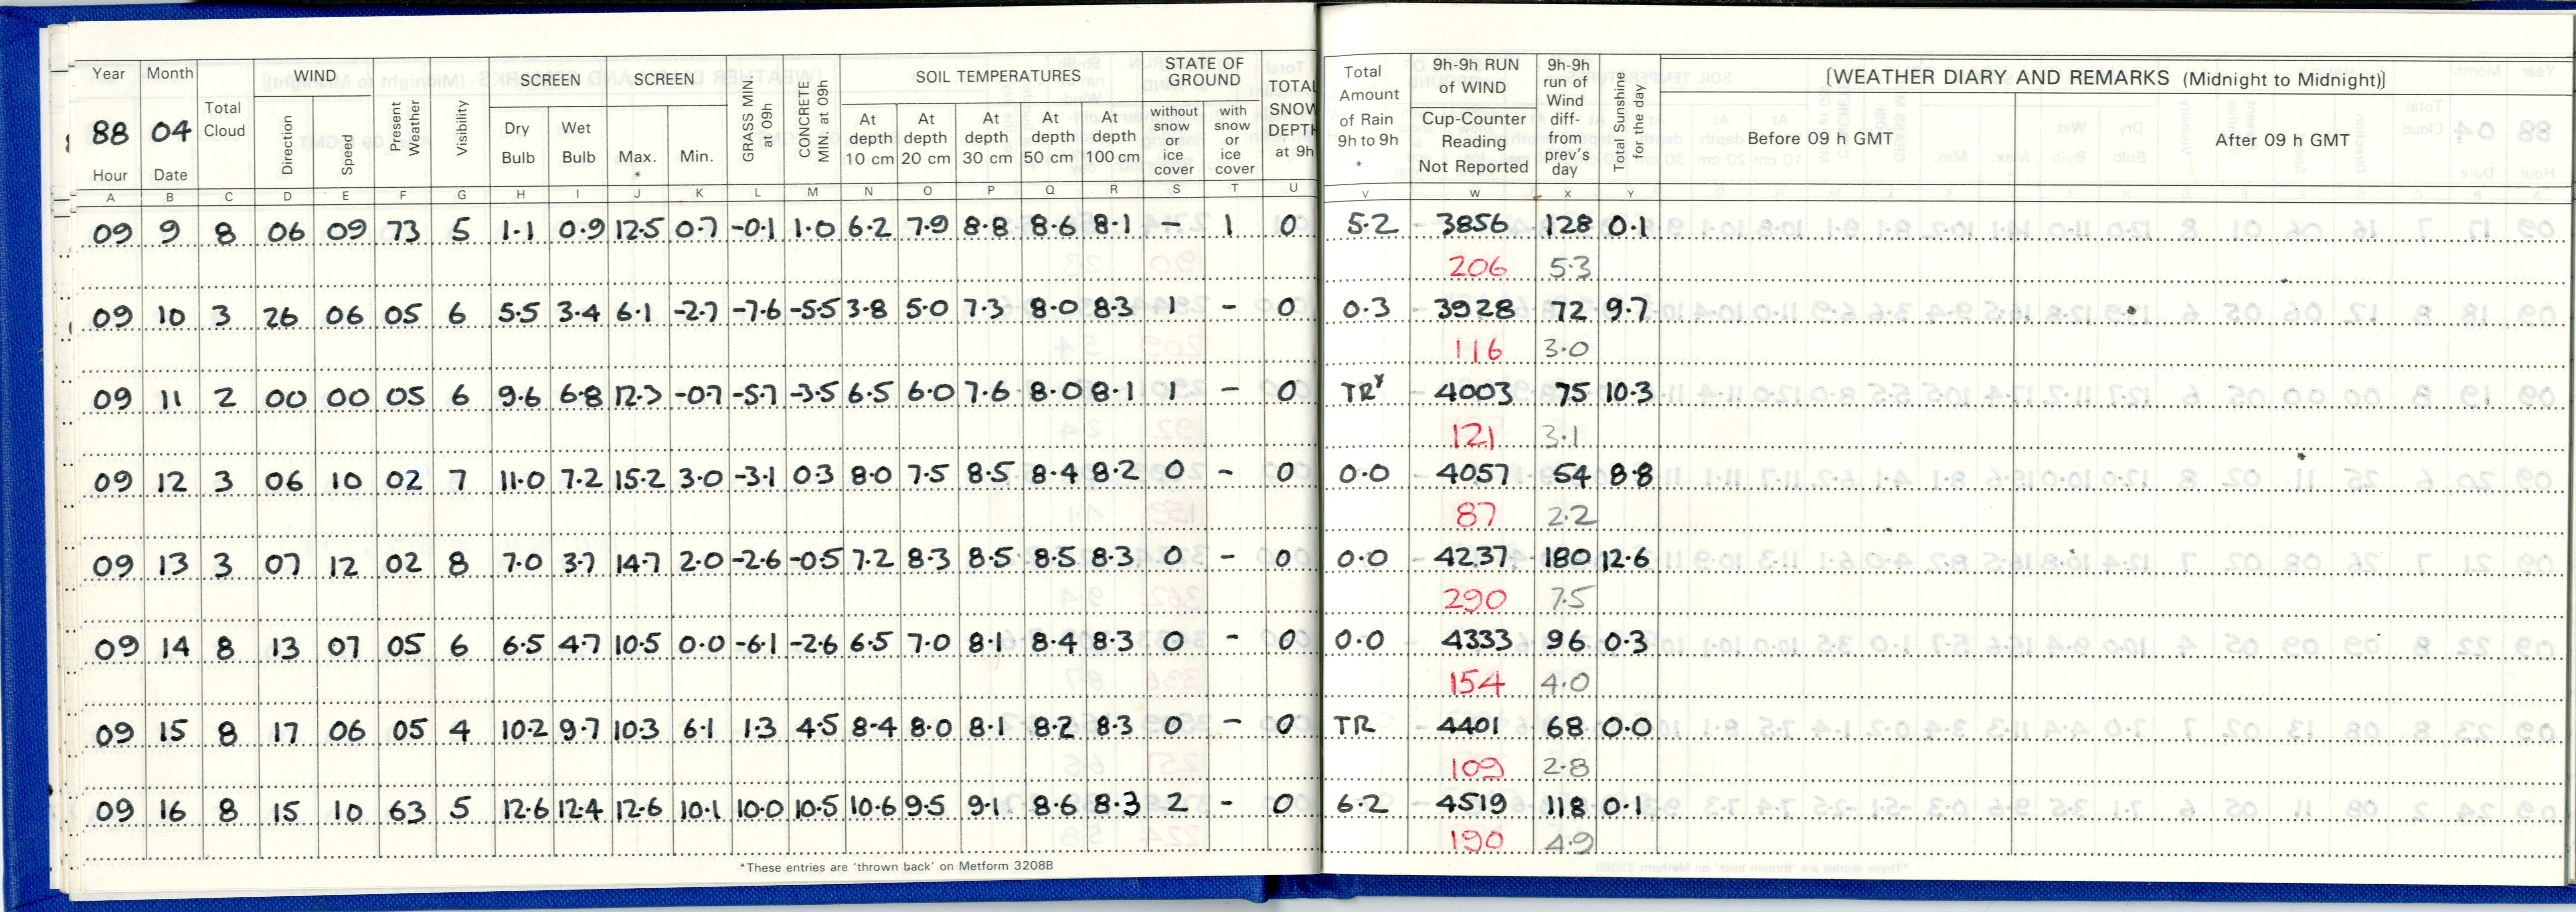 Year Month Total Cloud WIND Present Weather Visibility SCREEN SCREEN GRASS MIN at 09h CONCRETE MIN at 09h SOIL TEMPERATURES STATE OF GROUND TOTAL SNOW DEPTH at 9h Total Amount of Rain 9h to 9h * 9h-9h RUN of WIND 9h-9h run of Wind diff- from prev's day Total Sunshine for the day [WEATHER DIARY AND REMARKS (Midnight to Midnight)]
88 04 Direction Speed Dry Bulb Wet Bulb Max. * Min. At depth 10 cm At depth 20 cm At depth 30 cm At depth 50 cm At depth 100 cm without snow or ice cover with snow or ice cover Cup-Counter Reading Not Reported Before 09 h GMT After 09 h GMT
Hour Date
A B C D E F G H I J K L M N O P Q R S T U V W X Y
09 9 8 06 09 73 5 1.1 0.9 12.5 0.7 -0.1 1.0 6.2 7.9 8.8 8.6 8.1 - 1 0 5.2 3856 128 0.1
206 5.3
09 10 3 26 06 05 6 5.5 3.4 6.1 -2.7 -7.6 -5.5 3.8 5.0 7.3 8.0 8.3 1 - 0 0.3 3928 72 9.7
116 3.0
09 11 2 00 00 05 6 9.6 6.8 12.3 -0.7 -5.7 -3.5 6.5 6.0 7.6 8.0 8.1 1 - 0 TR* 4003 75 10.3
121 3.1
09 12 3 06 10 02 7 11.0 7.2 15.2 3.0 -3.1 0.3 8.0 7.5 8.5 8.4 8.2 0 - 0 0.0 4057 54 8.8
87 2.2
09 13 3 07 12 02 8 7.0 3.7 14.7 2.0 -2.6 -0.5 7.2 8.3 8.5 8.5 8.3 0 - 0 0.0 4237 180 12.6
290 7.5
09 14 8 13 07 05 6 6.5 4.7 10.5 0.0 -6.1 -2.6 6.5 7.0 8.1 8.4 8.3 0 - 0 0.0 4333 96 0.3
154 4.0
09 15 8 17 06 05 4 10.2 9.7 10.3 6.1 1.3 4.5 8.4 8.0 8.1 8.2 8.3 0 - 0 TR 4401 68 0.0
109 2.8
09 16 8 15 10 63 5 12.6 12.4 12.6 10.1 10.0 10.5 10.6 9.5 9.1 8.6 8.3 2 - 0 6.2 4519 118 0.1
190 4.9
*These entries are 'thrown back' on Metform 3208B